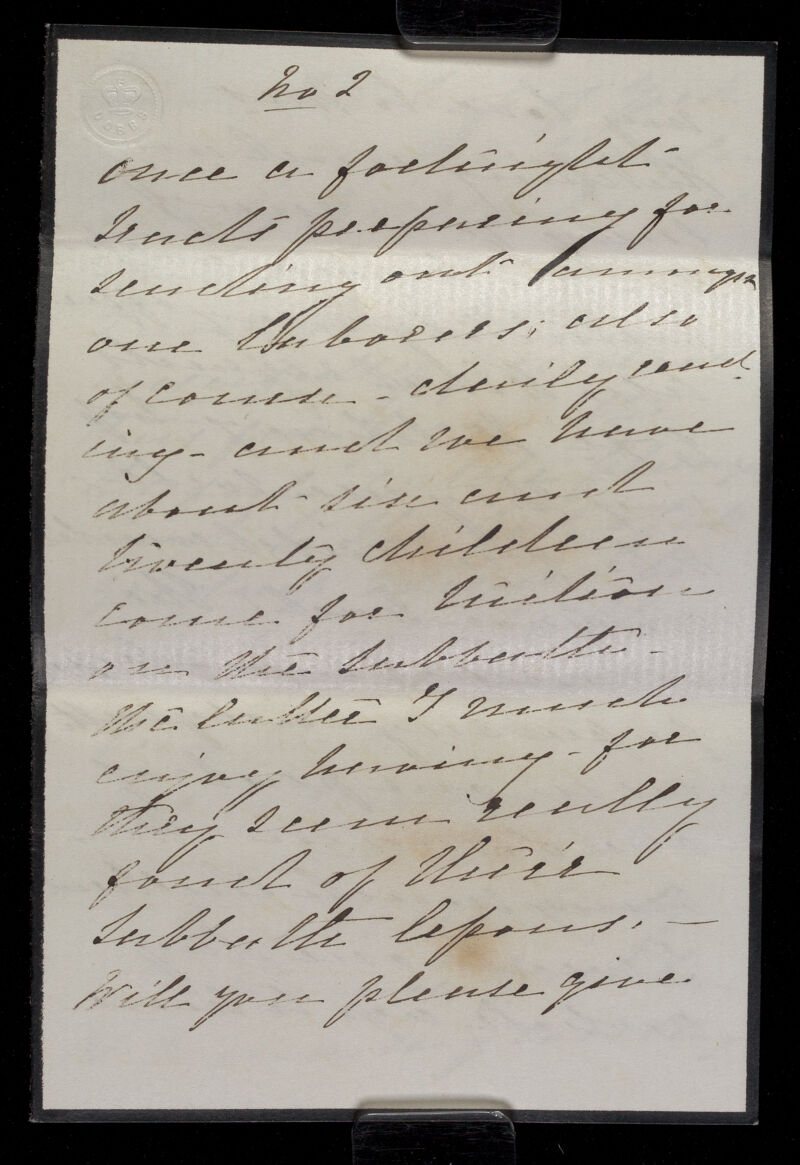 DOBBS
No 2
once a fortnight
tracts preparing for
sending out amongst
our Laborers; also
of course - daily read
ing - and we have
about six and
twenty children
come for tuition
on the Sabbath -
the latter I much
enjoy having - for
they seem really
fond of their
Sabbath lessons. —
Will you please give